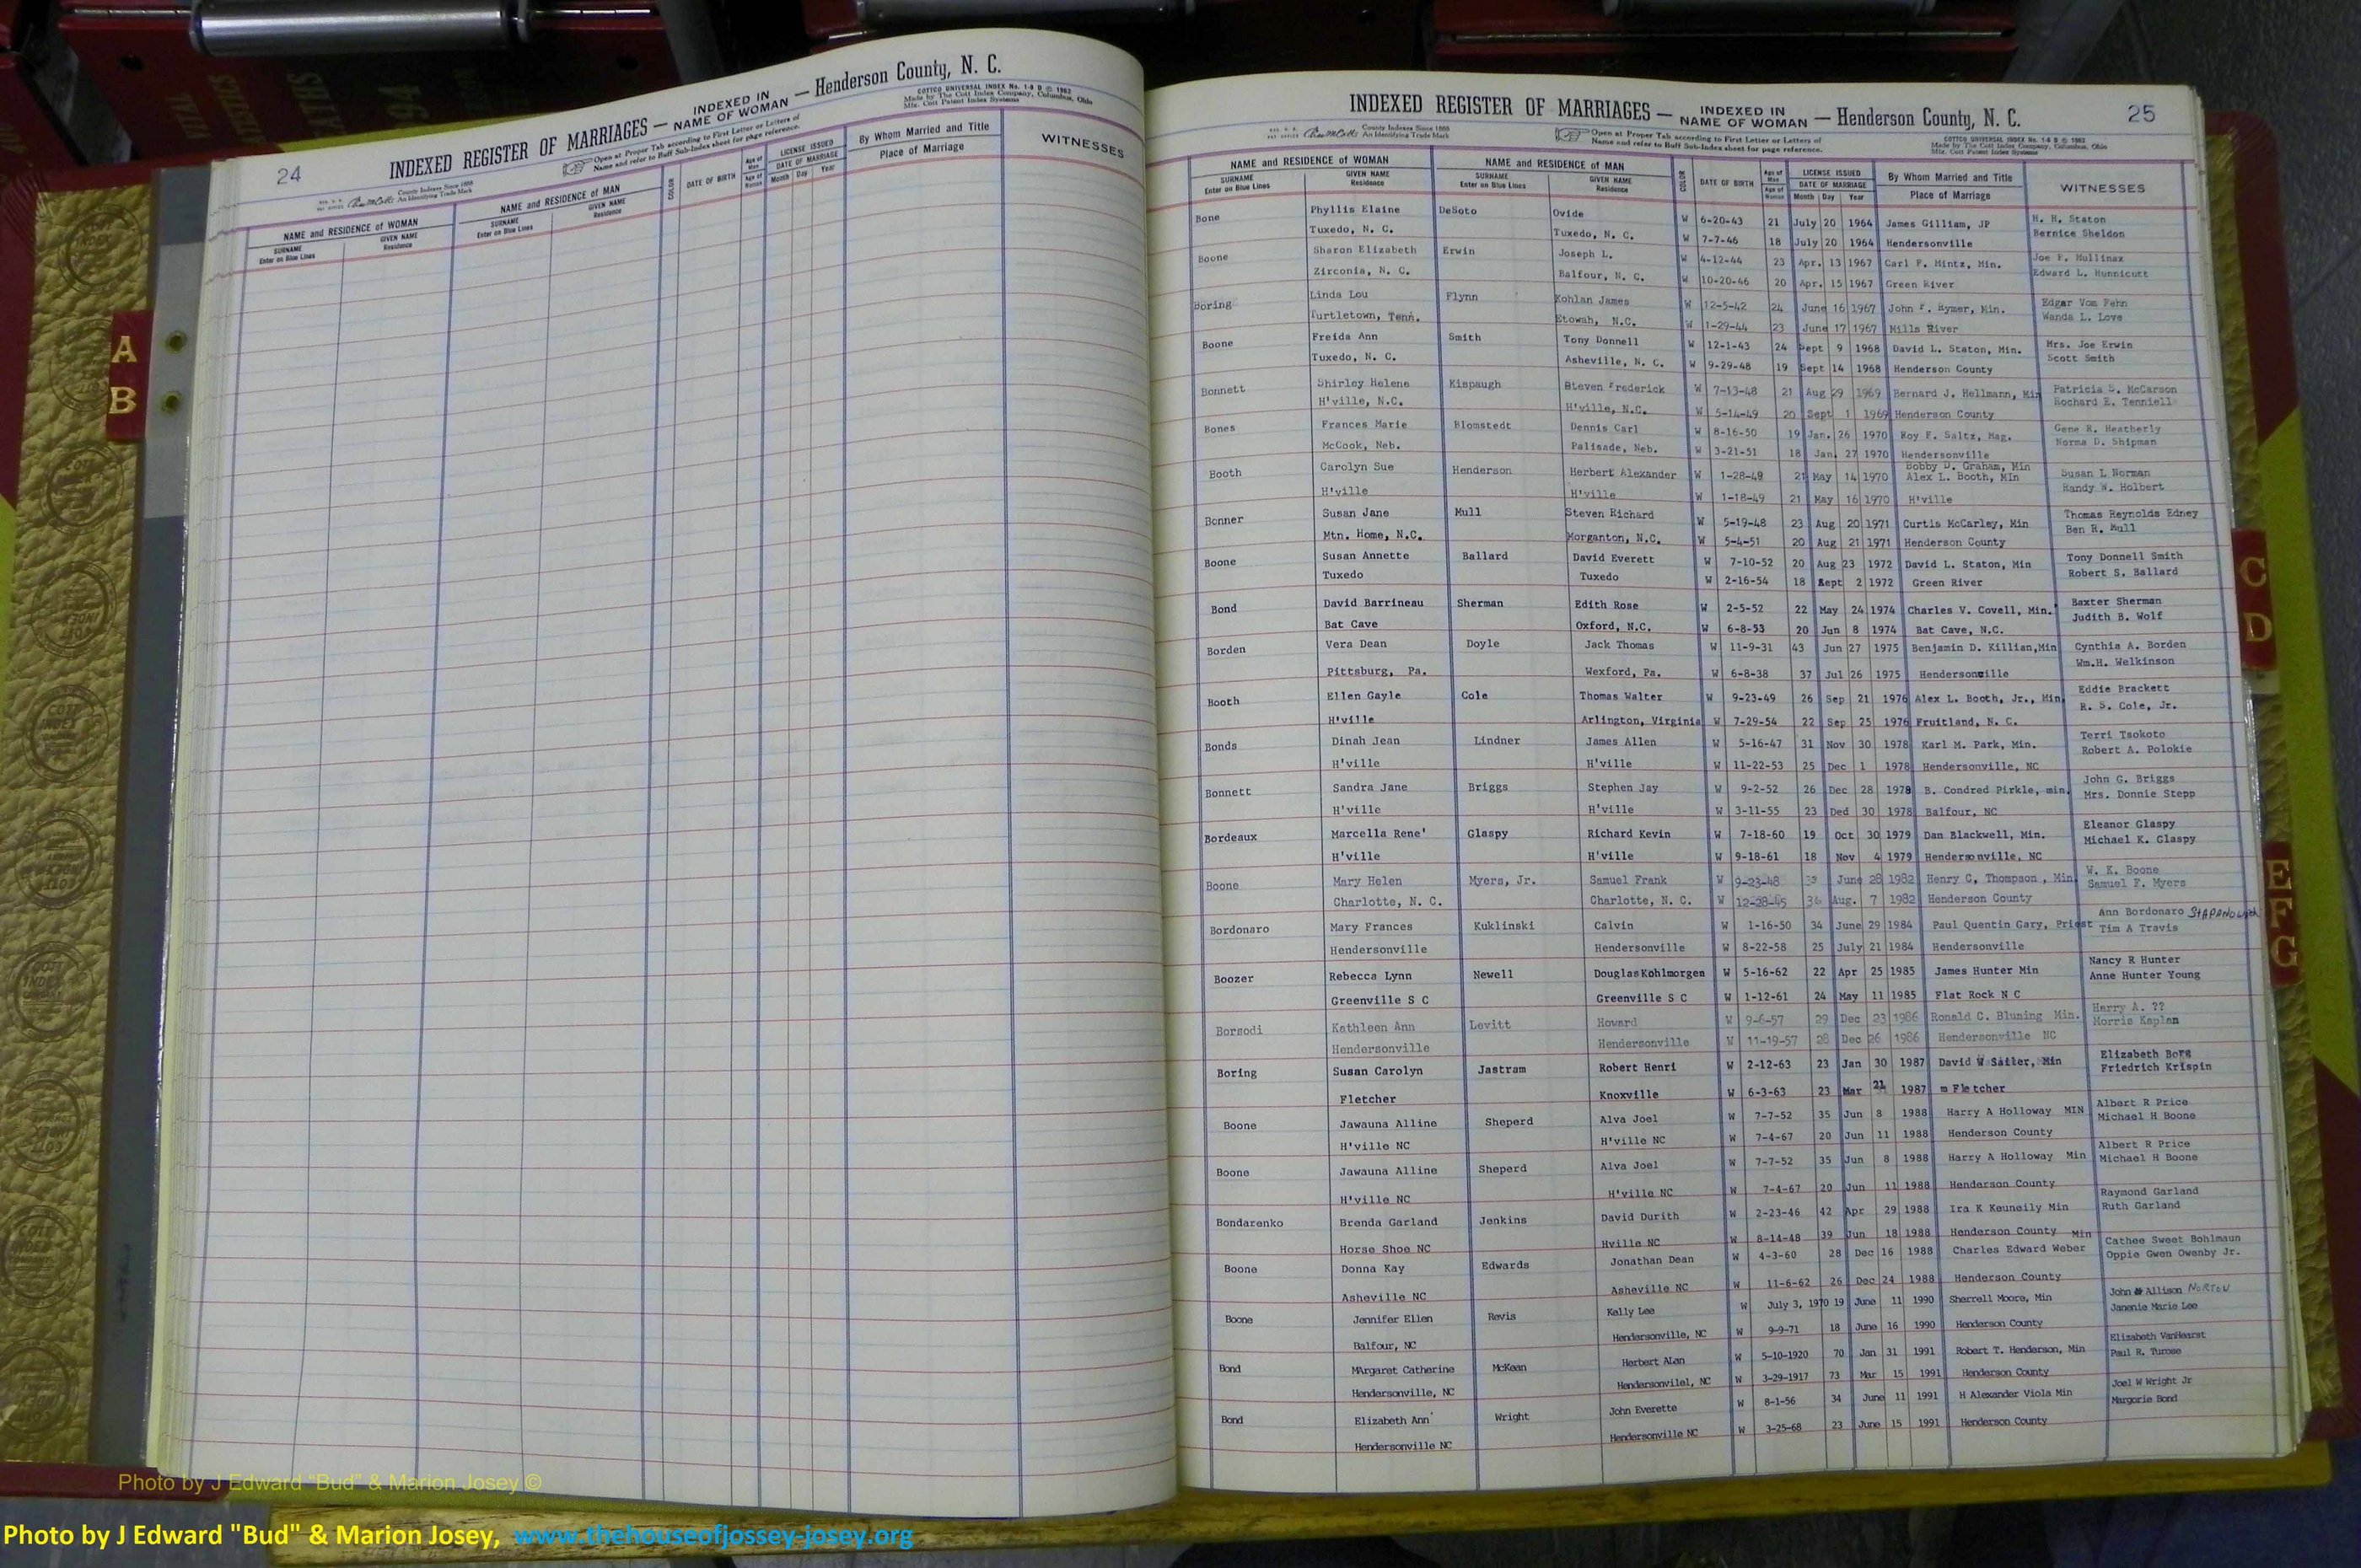 24
INDEXED REGISTER OF MARRIAGES — INDEXED IN NAME OF WOMAN — Henderson County, N. C.
COTTCO UNIVERSAL INDEX No. 1-9 B © 1963
Made by The Cott Index Company, Columbus, Ohio
Mfg. Cott Patent Index Systems
County Indexes Since 1888
An Identifying Trade Mark
Open at Proper Tab according to First Letter or Letters of
Name and refer to Buff Sub-Index sheet for page reference.
NAME and RESIDENCE of WOMAN NAME and RESIDENCE of MAN COLOR DATE OF BIRTH Age of Man Age of Woman LICENSE ISSUED DATE OF MARRIAGE By Whom Married and Title WITNESSES
SURNAME Enter on Blue Lines GIVEN NAME Residence SURNAME Enter on Blue Lines GIVEN NAME Residence Month Day Year Place of Marriage
A
B
25
INDEXED REGISTER OF MARRIAGES — INDEXED IN NAME OF WOMAN — Henderson County, N. C.
County Indexes Since 1888
An Identifying Trade Mark
Open at Proper Tab according to First Letter or Letters of
Name and refer to Buff Sub-Index sheet for page reference.
COTTCO UNIVERSAL INDEX No. 1-9 B © 1963
Made by The Cott Index Company, Columbus, Ohio
Mfg. Cott Patent Index Systems
NAME and RESIDENCE of WOMAN NAME and RESIDENCE of MAN COLOR DATE OF BIRTH Age of Man Age of Woman LICENSE ISSUED DATE OF MARRIAGE By Whom Married and Title WITNESSES
SURNAME Enter on Blue Lines GIVEN NAME Residence SURNAME Enter on Blue Lines GIVEN NAME Residence Month Day Year Place of Marriage
Bone Phyllis Elaine DeSoto Ovide W 6-20-43 21 July 20 1964 James Gilliam, JP H. H. Staton
Tuxedo, N. C. Tuxedo, N. C. W 7-7-46 18 July 20 1964 Hendersonville Bernice Sheldon
Boone Sharon Elizabeth Erwin Joseph L. W 4-12-44 23 Apr. 13 1967 Carl F. Mintz, Min. Joe F. Mullinax
Zirconia, N. C. Balfour, N. C. W 10-20-46 20 Apr. 15 1967 Green River Edward L. Hunnicutt
Boring Linda Lou Flynn Kohlan James W 12-5-42 24 June 16 1967 John F. Rymer, Min. Edgar Vom Fehn
Turtletown, Tenn. Etowah, N.C. W 1-29-44 23 June 17 1967 Mills River Wanda L. Love
Boone Freida Ann Smith Tony Donnell W 12-1-43 24 Sept 9 1968 David L. Staton, Min. Mrs. Joe Erwin
Tuxedo, N. C. Asheville, N. C. W 9-29-48 19 Sept 14 1968 Henderson County Scott Smith
Bonnett Shirley Helene Kispaugh Steven Frederick W 7-13-48 21 Aug 29 1969 Bernard J. Hellmann, Min Patricia S. McCarson
H'ville, N.C. H'ville, N.C. W 5-14-49 20 Sept 1 1969 Henderson County Rochard E. Tenniell
Bones Frances Marie Blomstedt Dennis Carl W 8-16-50 19 Jan. 26 1970 Roy F. Saltz, Mag. Gene R. Heatherly
McCook, Neb. Palisade, Neb. W 3-21-51 18 Jan. 27 1970 Hendersonville Norma D. Shipman
Bobby D. Graham, Min
Booth Carolyn Sue Henderson Herbert Alexander W 1-28-49 21 May 14 1970 Alex L. Booth, MIn Susan L Norman
H'ville H'ville W 1-18-49 21 May 16 1970 H'ville Randy W. Holbert
Bonner Susan Jane Mull Steven Richard W 5-19-48 23 Aug 20 1971 Curtis McCarley, Min Thomas Reynolds Edney
Mtn. Home, N.C. Morganton, N.C. W 5-4-51 20 Aug 21 1971 Henderson County Ben R. Mull
Boone Susan Annette Ballard David Everett W 7-10-52 20 Aug 23 1972 David L. Staton, Min Tony Donnell Smith
Tuxedo Tuxedo W 2-16-54 18 Sept 2 1972 Green River Robert S. Ballard
Bond David Barrineau Sherman Edith Rose W 2-5-52 22 May 24 1974 Charles V. Covell, Min. Baxter Sherman
Bat Cave Oxford, N.C. W 6-8-53 20 Jun 8 1974 Bat Cave, N.C. Judith B. Wolf
Borden Vera Dean Doyle Jack Thomas W 11-9-31 43 Jun 27 1975 Benjamin D. Killian,Min Cynthia A. Borden
Pittsburg, Pa. Wexford, Pa. W 6-8-38 37 Jul 26 1975 Hendersonville Wm.H. Welkinson
Booth Ellen Gayle Cole Thomas Walter W 9-23-49 26 Sep 21 1976 Alex L. Booth, Jr., Min. Eddie Brackett
H'ville Arlington, Virginia W 7-29-54 22 Sep 25 1976 Fruitland, N. C. R. S. Cole, Jr.
Bonds Dinah Jean Lindner James Allen W 5-16-47 31 Nov 30 1978 Karl M. Park, Min. Terri Tsokoto
H'ville H'ville W 11-22-53 25 Dec 1 1978 Hendersonville, NC Robert A. Polokie
Bonnett Sandra Jane Briggs Stephen Jay W 9-2-52 26 Dec 28 1978 B. Condred Pirkle, min. John G. Briggs
H'ville H'ville W 3-11-55 23 Ded 30 1978 Balfour, NC Mrs. Donnie Stepp
Bordeaux Marcella Rene' Glaspy Richard Kevin W 7-18-60 19 Oct 30 1979 Dan Blackwell, Min. Eleanor Glaspy
H'ville H'ville W 9-18-61 18 Nov 4 1979 Hendersonville, NC Michael K. Glaspy
Boone Mary Helen Myers, Jr. Samuel Frank W 9-23-48 June 28 1982 Henry C. Thompson , Min. W. K. Boone
Charlotte, N. C. Charlotte, N. C. W 12-28-45 36 Aug. 7 1982 Henderson County Samuel F. Myers
Bordonaro Mary Frances Kuklinski Calvin W 1-16-50 34 June 29 1984 Paul Quentin Gary, Priest Ann Bordonaro
Hendersonville Hendersonville W 8-22-58 25 July 21 1984 Hendersonville Tim A Travis
Boozer Rebecca Lynn Newell Douglas Kohlmorgen W 5-16-62 22 Apr 25 1985 James Hunter Min Nancy R Hunter
Greenville S C Greenville S C W 1-12-61 24 May 11 1985 Flat Rock N C Anne Hunter Young
Borsodi Kathleen Ann Levitt Howard W 9-6-57 29 Dec 23 1986 Ronald C. Bluning Min. Harry A. ??
Hendersonville Hendersonville W 11-19-57 28 Dec 26 1986 Hendersonville NC Morris Kaplan
Boring Susan Carolyn Jastram Robert Henri W 2-12-63 23 Jan 30 1987 David W Satler, Min Elizabeth Borg
Fletcher Knoxville W 6-3-63 23 Mar 21 1987 m Fletcher Friedrich Krispin
Boone Jawauna Alline Sheperd Alva Joel W 7-7-52 35 Jun 8 1988 Harry A Holloway MIN Albert R Price
H'ville NC H'ville NC W 7-4-67 20 Jun 11 1988 Henderson County Michael H Boone
Boone Jawauna Alline Sheperd Alva Joel W 7-7-52 35 Jun 8 1988 Harry A Holloway Min Albert R Price
H'ville NC H'ville NC W 7-4-67 20 Jun 11 1988 Henderson County Michael H Boone
Bondarenko Brenda Garland Jenkins David Durith W 2-23-46 42 Apr 29 1988 Ira K Keuneily Min Raymond Garland
Horse Shoe NC Hville NC W 8-14-48 39 Jun 18 1988 Henderson County Ruth Garland
Boone Donna Kay Edwards Jonathan Dean W 4-3-60 28 Dec 16 1988 Charles Edward Weber Min Cathee Sweet Bohlmaun
Asheville NC Asheville NC W 11-6-62 26 Dec 24 1988 Henderson County Oppie Gwen Owenby Jr.
Boone Jennifer Ellen Revis Kelly Lee W July 3, 1970 19 June 11 1990 Sherrell Moore, Min John Allison NORTON
Balfour, NC Hendersonville, NC W 9-9-71 18 June 16 1990 Henderson County Janenie Marie Lee
Bond MArgaret Catherine McKean Herbert ALan W 5-10-1920 70 Jan 31 1991 Robert T. Henderson, Min Elizabeth VanHearst
Hendersonville, NC Hendersonvilel, NC W 3-29-1917 73 Mar 15 1991 Henderson County Paul R. Turose
Bond Elizabeth Ann Wright John Everette W 8-1-56 34 June 11 1991 H Alexander Viola Min Joel W Wright Jr
Hendersonville NC Hendersonville NC W 3-25-68 23 June 15 1991 Henderson County Margorie Bond
C
D
E
F
G
Photo by J Edward "Bud" & Marion Josey ©
Photo by J Edward "Bud" & Marion Josey, www.thehouseofjossey-josey.org